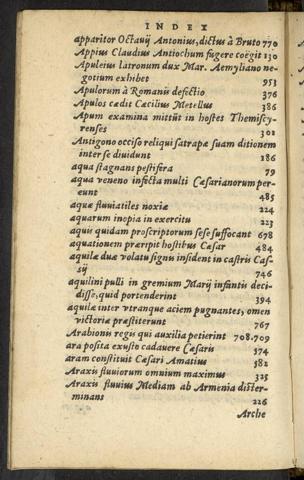 INDEX
apparitor Octauij Antonius, dictus à Bruto 770
Appius Claudius Antiochum fugere coëgit 130
Apuleius latronum dux Mar. Aemyliano ne-
gotium exhibet 953
Apulorum à Romanis defectio 376
Apulos cædit Cæcilius Metellus 386
Apum examina mittūt in hostes Themiscy-
renses 301
Antigono occiso reliqui satrapæ suam ditionem
inter se diuidunt 186
aqua stagnans pestifera 79
aqua veneno infecta multi Cæsarianorum per-
eunt 485
aquæ fluuiatiles noxiæ 224
aquarum inopia in exercitu 223
aquis quidam proscriptorum sese suffocant 678
aquationem præripit hostibus Cæsar 484
aquilæ duæ volatu signis insident in castris Cas-
sij 746
aquilini pulli in gremium Marij infantis deci-
disse, quid portenderint 394
aquilæ inter vtranque aciem pugnantes, omen
victoriæ præstiterunt 767
Arabionis regis qui auxilia petierint 708.709
ara posita exusto cadauere Cæsaris 574
aram constituit Cæsari Amatius 582
Araxis fluuiorum omnium maximus 325
Araxis fluuius Mediam ab Armenia dister-
minans 226
Arche